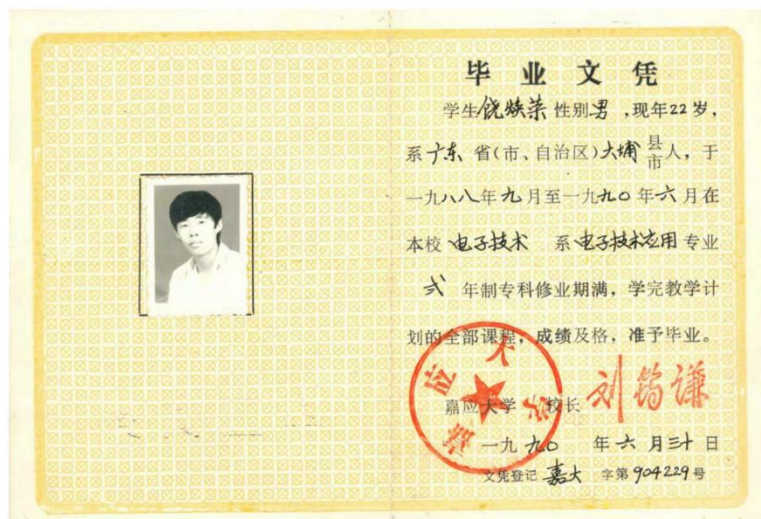 毕业文凭
学生饶焕荣性别男,现年22岁,
系广东省(市、自治区)大埔县市人,于
一九八八年九月至一九九〇年六月在
本校电子技术 系电子技术应用专业
弍 年制专科修业期满,学完教学计
划的全部课程,成绩及格,准予毕业。
嘉应大学 校长 刘筠谦
一九九〇 年六月三十日
文凭登记 嘉大 字第904229号
嘉应大学